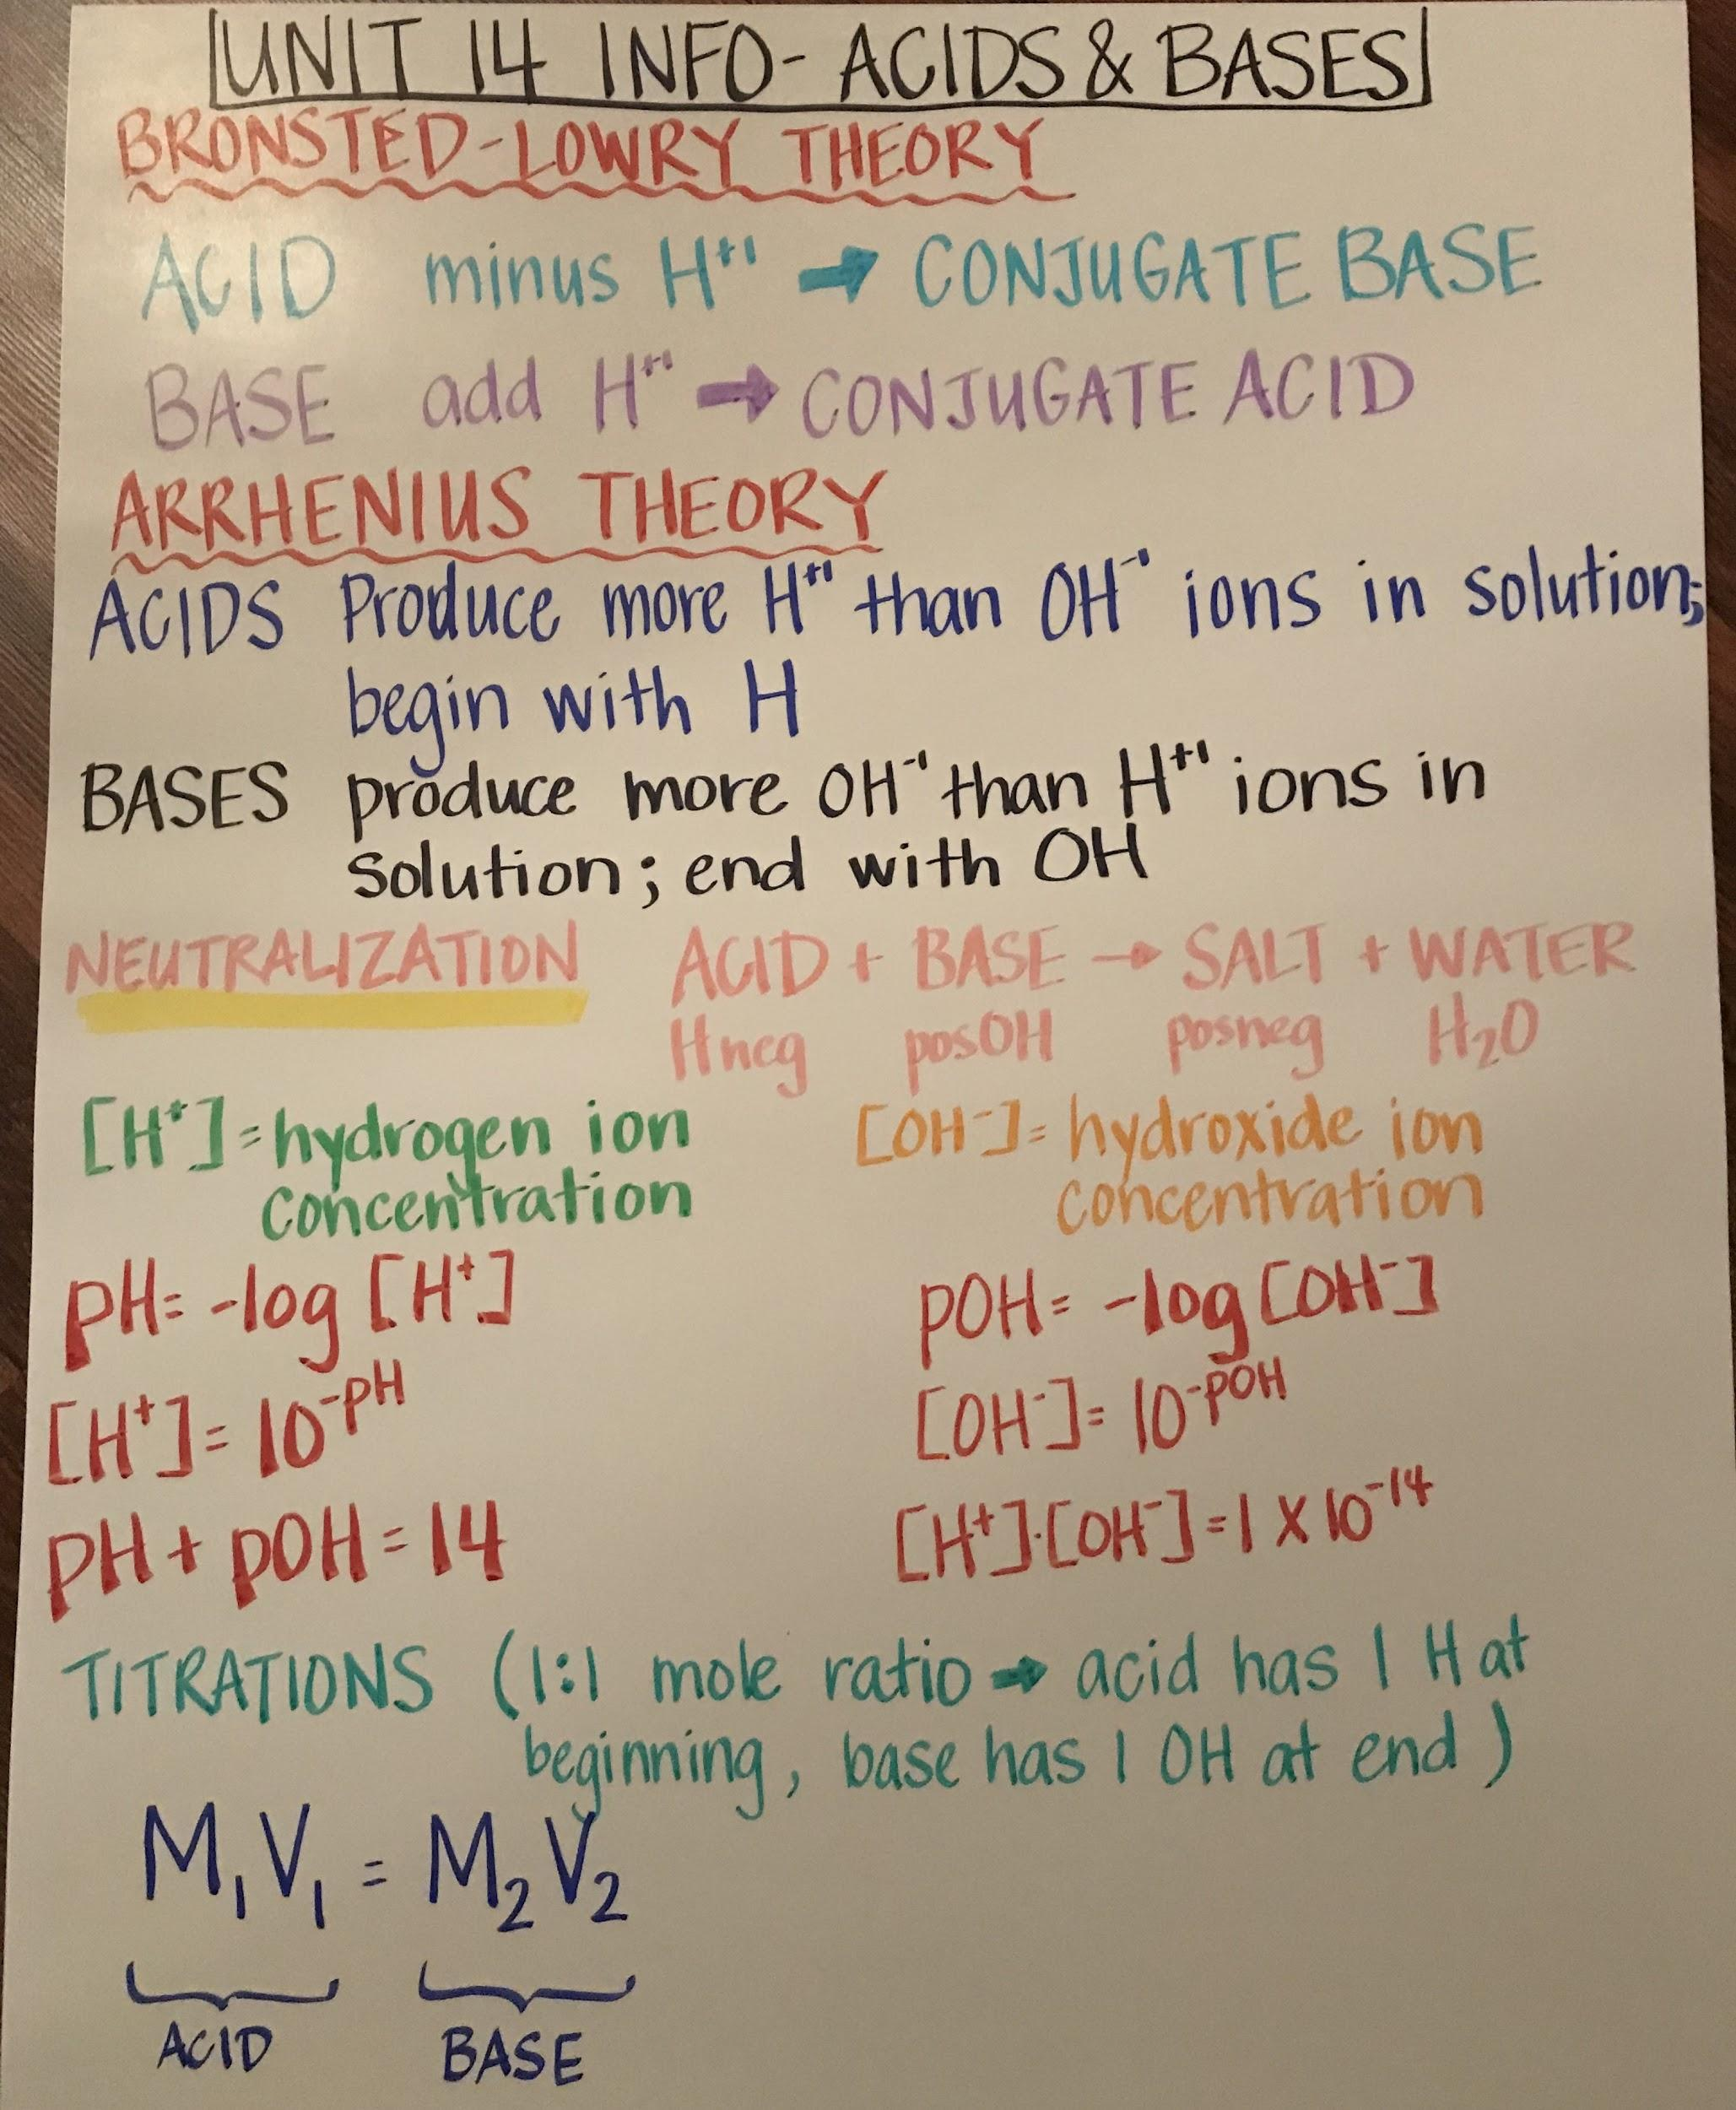 UNIT 14 INFO- ACIDS & BASES
BRONSTED-LOWRY THEORY
ACID minus H⁺¹ → CONJUGATE BASE
BASE add H⁺¹ → CONJUGATE ACID
ARRHENIUS THEORY
ACIDS Produce more H⁺¹ than OH⁻¹ ions in solution;
begin with H
BASES produce more OH⁻¹ than H⁺¹ ions in
solution; end with OH
NEUTRALIZATION ACID + BASE → SALT + WATER
Hneg posOH posneg H₂O
[H⁺]= hydrogen ion [OH⁻]= hydroxide ion
concentration concentration
pH= -log [H⁺] pOH= -log [OH⁻]
[H⁺]= 10⁻ᵖᴴ [OH⁻]= 10⁻ᵖᴼᴴ
pH + pOH = 14 [H⁺]·[OH⁻]=1 X 10⁻¹⁴
TITRATIONS (1:1 mole ratio → acid has 1 H at
beginning, base has 1 OH at end)
M₁V₁ = M₂V₂
ACID BASE